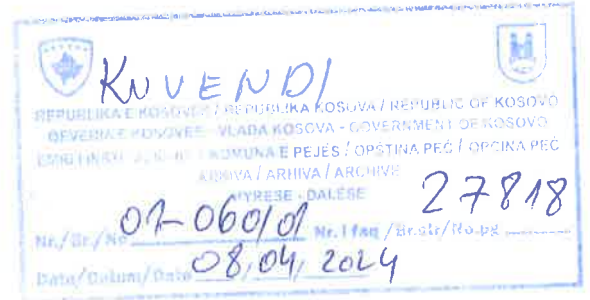 KUVENDI
REPUBLIKA E KOSOVËS / REPUBLIKA KOSOVA / REPUBLIC OF KOSOVO
QEVERIA E KOSOVËS - VLADA KOSOVA - GOVERNMENT OF KOSOVO
KOMUNA E PEJËS / OPŠTINA PEČ / OPCINA PEČ
ARHIVA / ARHIVA / ARCHIVE
HYRËSE - DALËSE
27818
Nr./Br./No 01-060/01 Nr. i faq /Br.str/No.pg
Data/Datum/Date 08,04, 2024